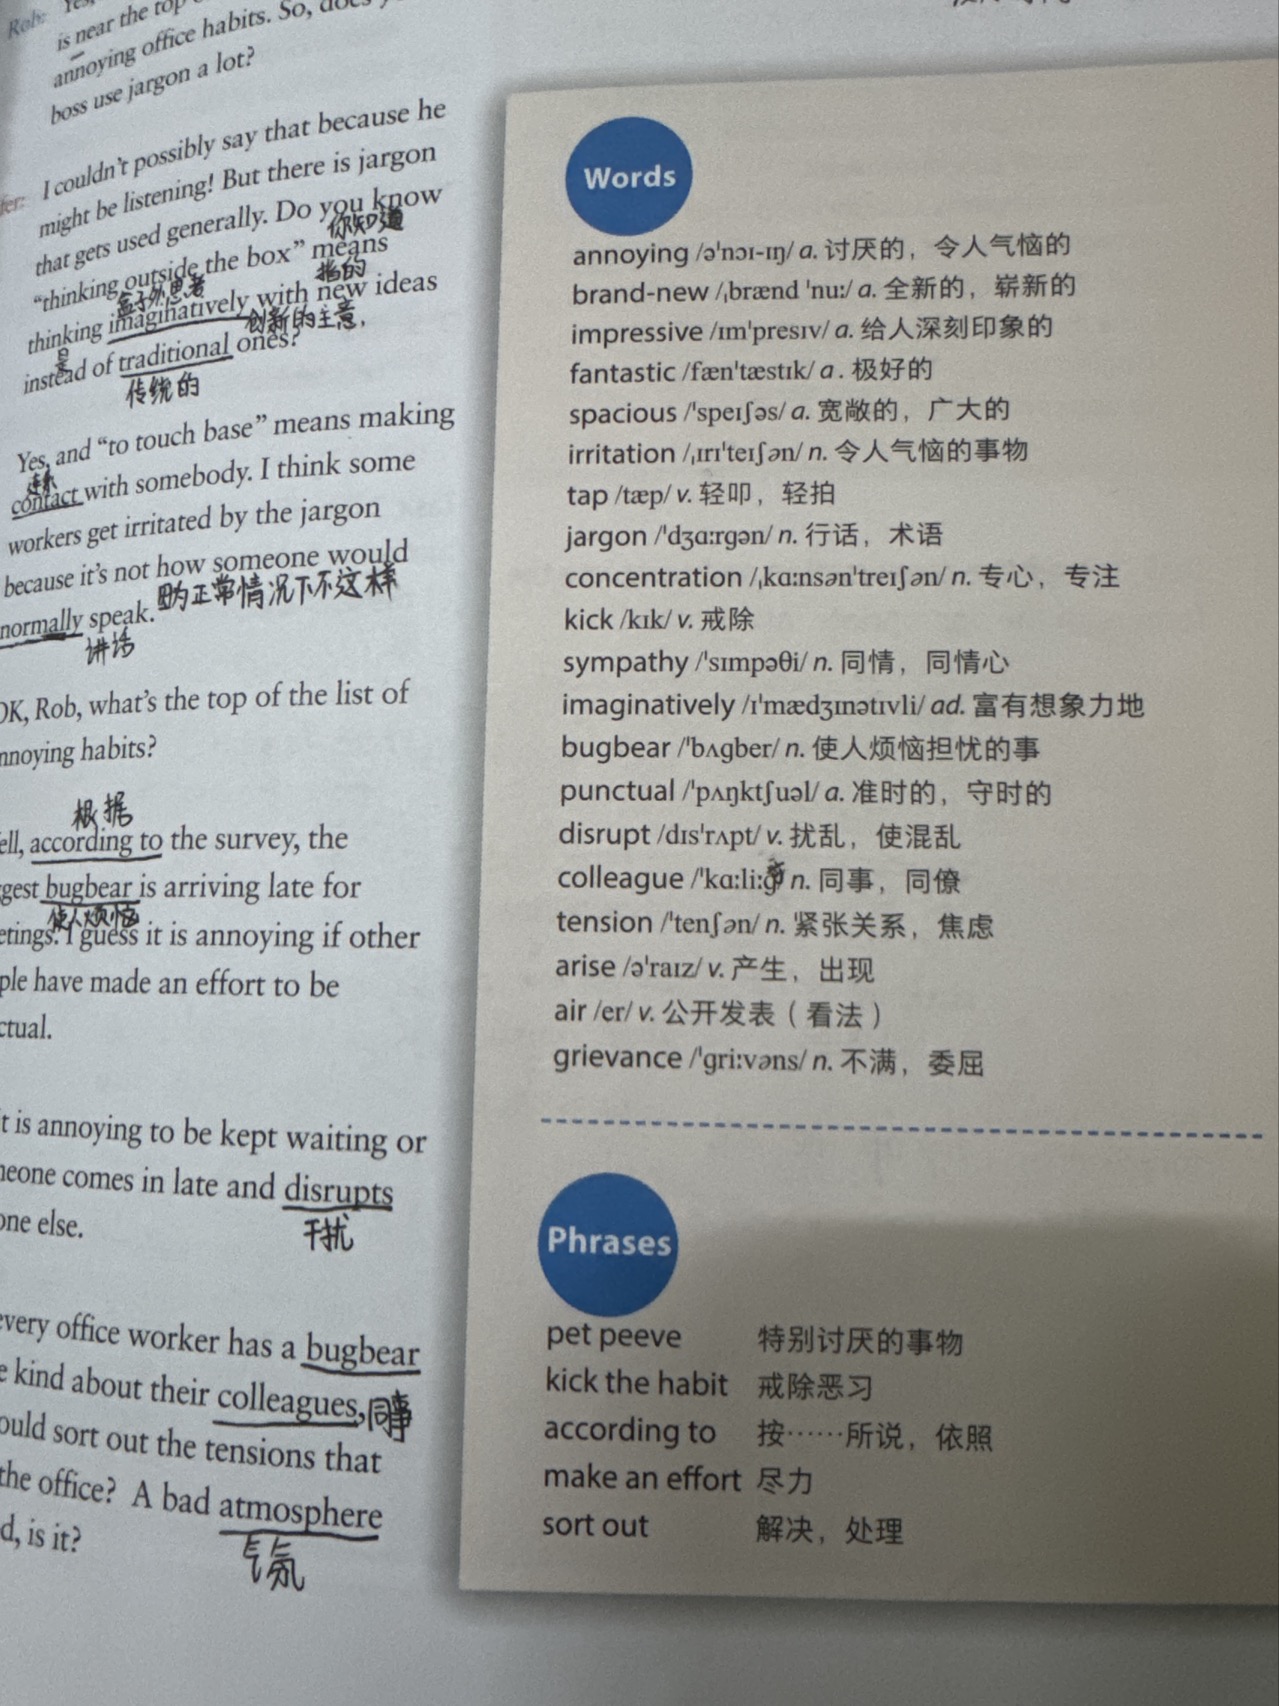 Rob:
is near the top
annoying office habits. So, does
boss use jargon a lot?
I couldn't possibly say that because he
might be listening! But there is jargon
that gets used generally. Do you know
你知道
"thinking outside the box" means
盒子外思考
指的
thinking imaginatively with new ideas
是
创新的主意,
instead of traditional ones?
传统的
Yes, and "to touch base" means making
contact with somebody. I think some
workers get irritated by the jargon
because it's not how someone would
normally speak.
因为正常情况下不这样
讲话
OK, Rob, what's the top of the list of
annoying habits?
根据
ell, according to the survey, the
ggest bugbear is arriving late for
使人烦恼
etings. I guess it is annoying if other
ple have made an effort to be
ctual.
t is annoying to be kept waiting or
meone comes in late and disrupts
干扰
one else.
every office worker has a bugbear
e kind about their colleagues,
同事
ould sort out the tensions that
the office? A bad atmosphere
气氛
d, is it?
Words
annoying /əˈnɔɪ-ɪŋ/ a. 讨厌的，令人气恼的
brand-new /ˌbrænd ˈnuː/ a. 全新的，崭新的
impressive /ɪmˈpresɪv/ a. 给人深刻印象的
fantastic /fænˈtæstɪk/ a. 极好的
spacious /ˈspeɪʃəs/ a. 宽敞的，广大的
irritation /ˌɪrɪˈteɪʃən/ n. 令人气恼的事物
tap /tæp/ v. 轻叩，轻拍
jargon /ˈdʒɑːrgən/ n. 行话，术语
concentration /ˌkɑːnsənˈtreɪʃən/ n. 专心，专注
kick /kɪk/ v. 戒除
sympathy /ˈsɪmpəθi/ n. 同情，同情心
imaginatively /ɪˈmædʒɪnətɪvli/ ad. 富有想象力地
bugbear /ˈbʌgber/ n. 使人烦恼担忧的事
punctual /ˈpʌŋktʃuəl/ a. 准时的，守时的
disrupt /dɪsˈrʌpt/ v. 扰乱，使混乱
colleague /ˈkɑːliːg/ n. 同事，同僚
tension /ˈtenʃən/ n. 紧张关系，焦虑
arise /əˈraɪz/ v. 产生，出现
air /er/ v. 公开发表（看法）
grievance /ˈgriːvəns/ n. 不满，委屈
Phrases
pet peeve 特别讨厌的事物
kick the habit 戒除恶习
according to 按……所说，依照
make an effort 尽力
sort out 解决，处理